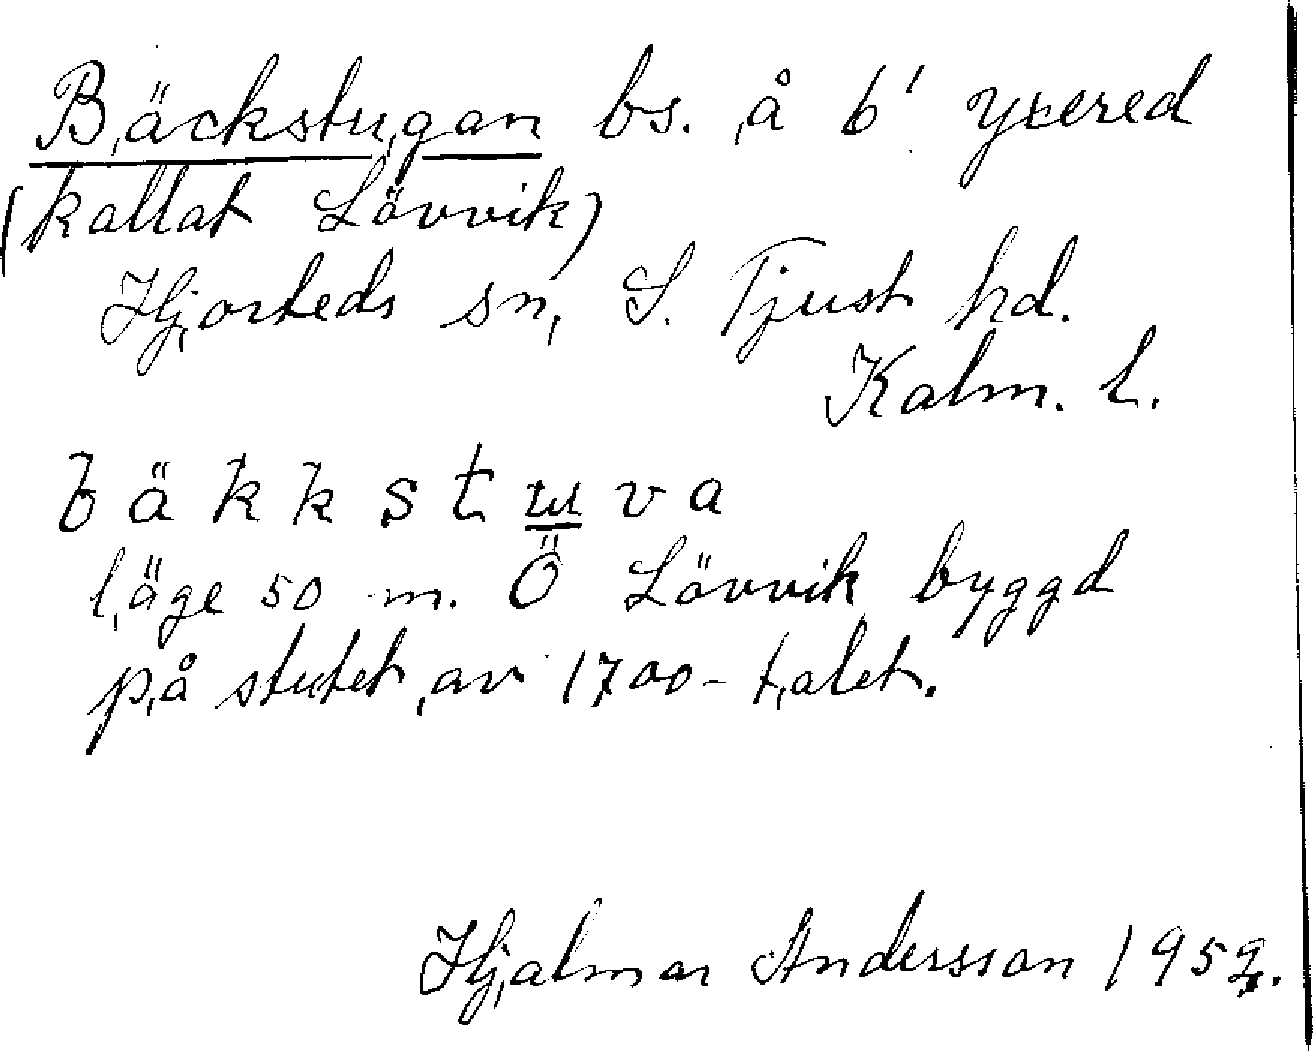 Bäckstugan bs. å 6' Yxered
(kallat Lövvik)
Hjorteds sn, S. Tjust hd.
Kalm. L.
b ä k k s t u v a
läge 50 m. Ö Lövvik byggd
på slutet av 1700-talet.
Hjalmar Andersson 1952.